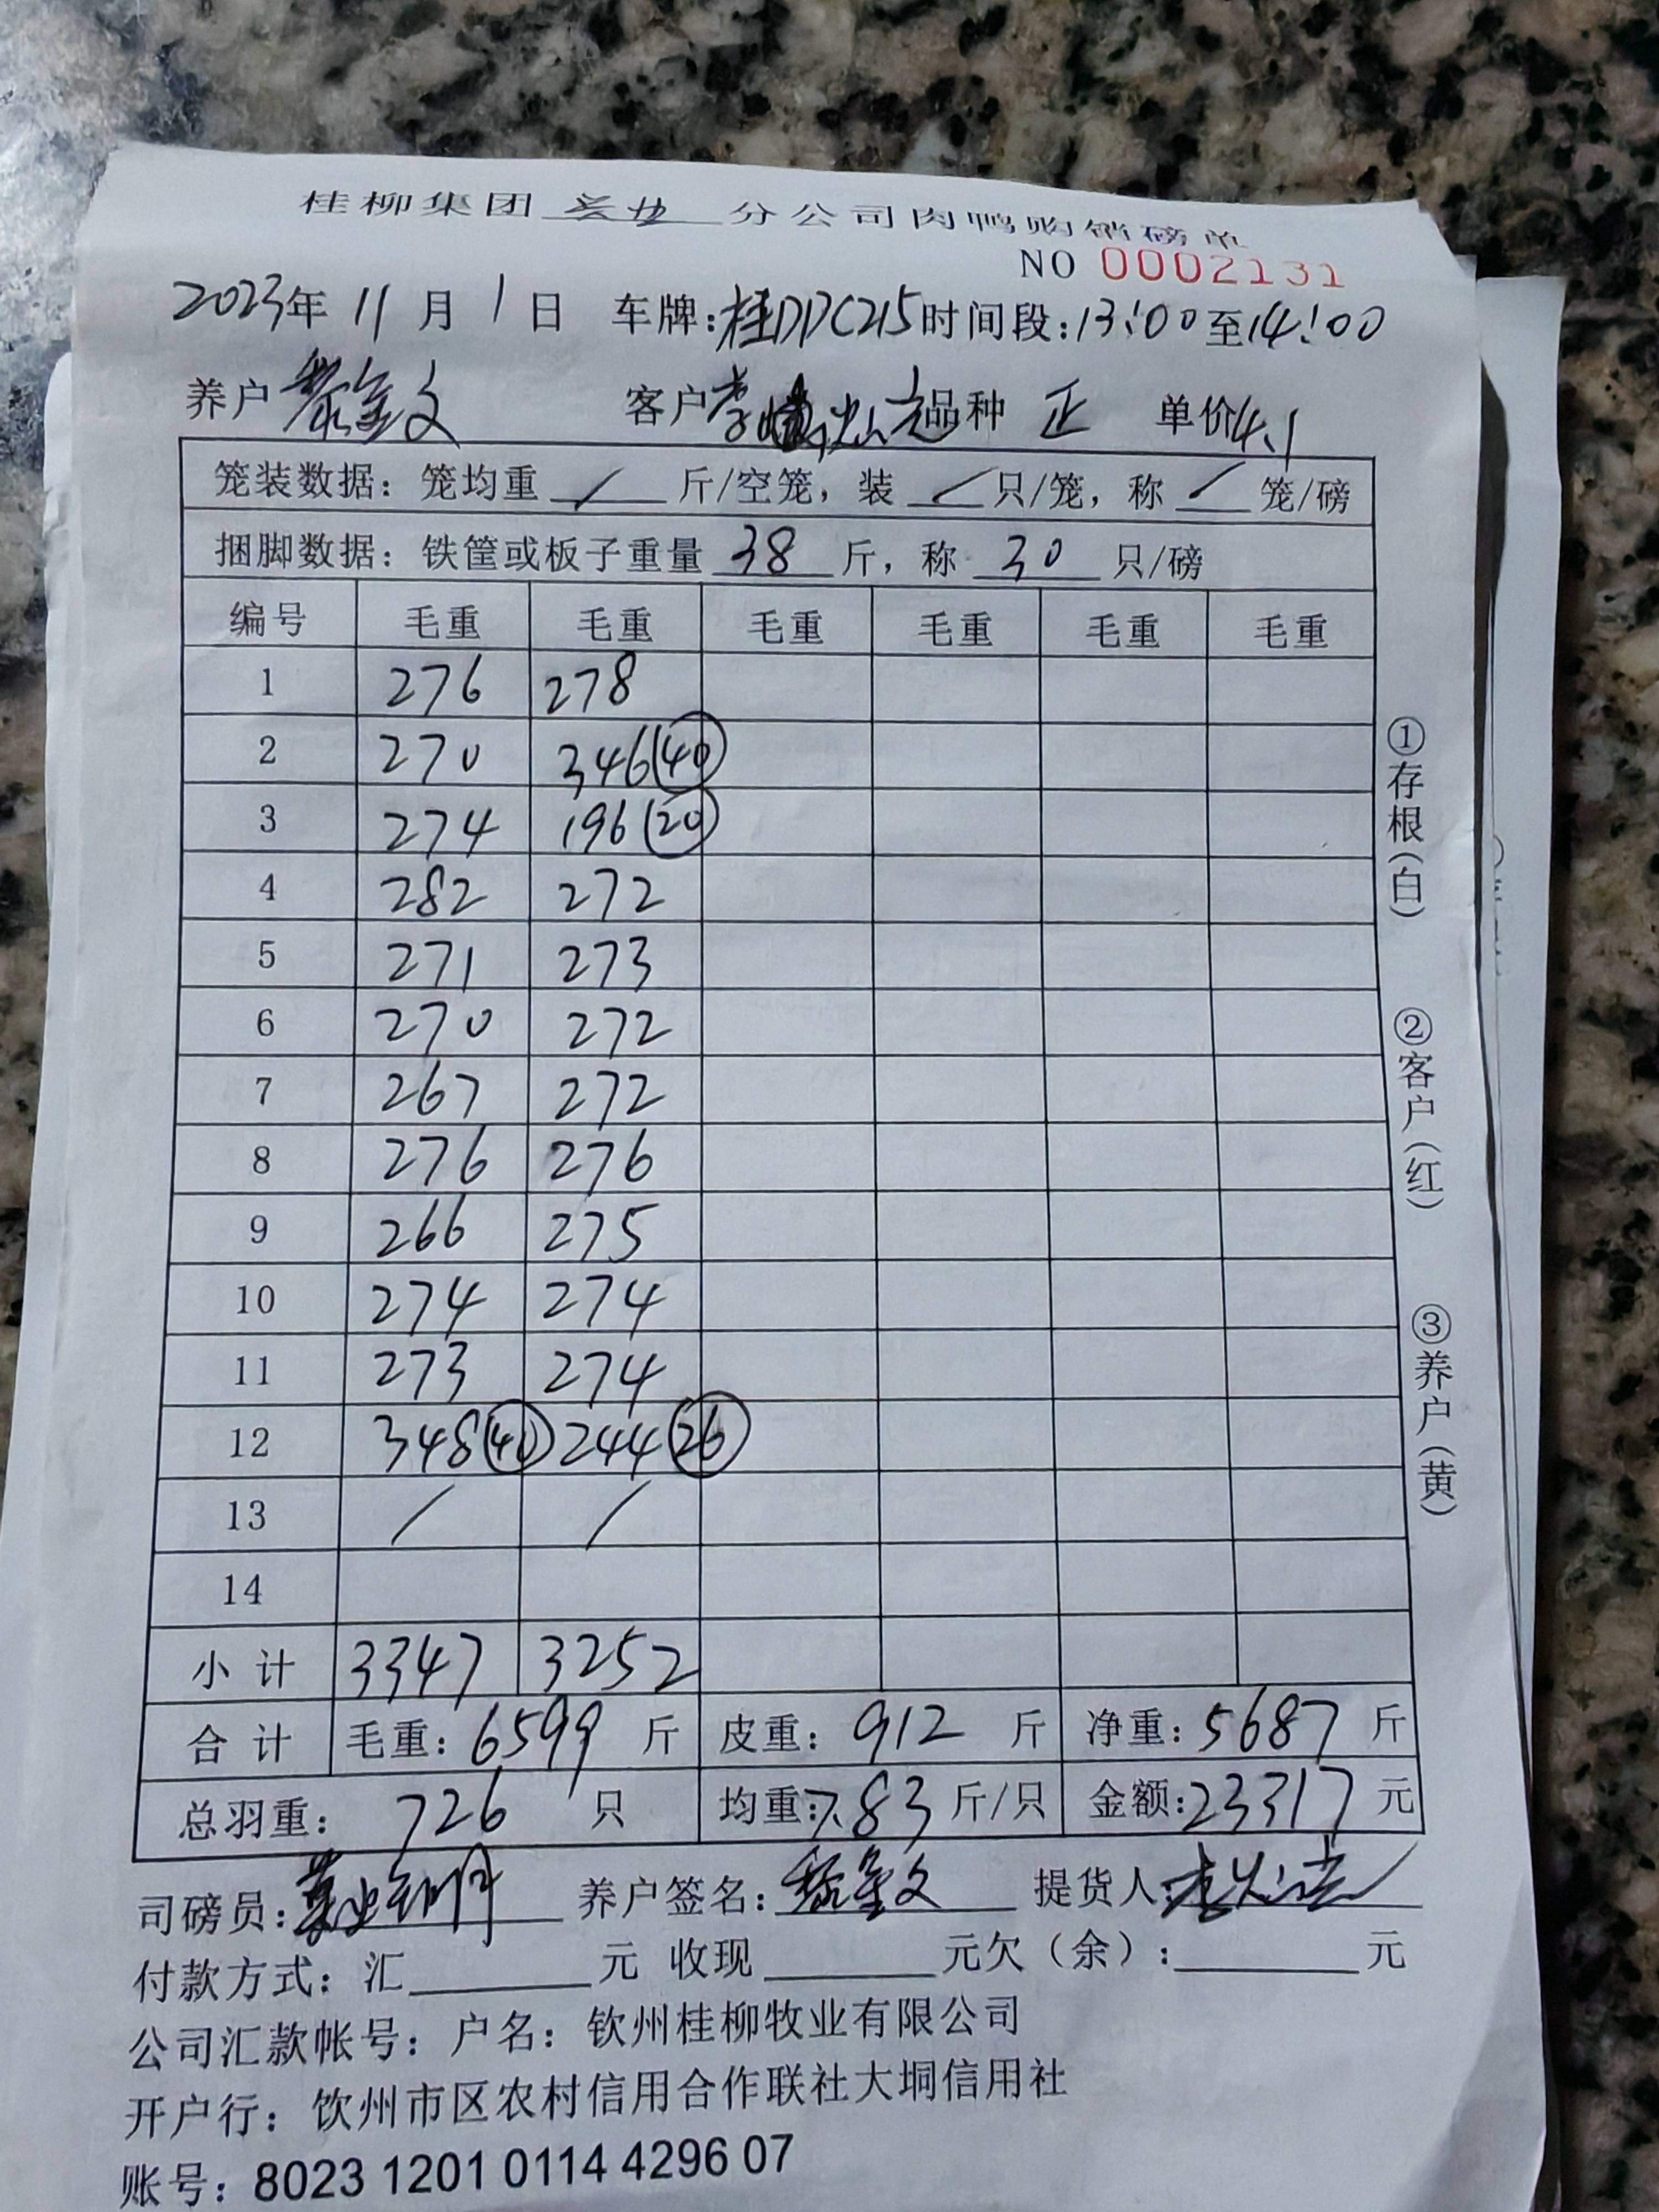 桂柳集团 分公司肉鸭购销磅单
NO 0002131
2023年 11月 1日 车牌:桂DDC215 时间段:13:00至14:00
养户 客户 品种 正 单价4.1
笼装数据: 笼均重 / 斤/空笼, 装 / 只/笼, 称 / 笼/磅
捆脚数据: 铁筐或板子重量 38 斤, 称 30 只/磅
编号 毛重 毛重 毛重 毛重 毛重 毛重
1 276 278
2 270 346 (40)
3 274 196 (20)
4 282 272
5 271 273
6 270 272
7 267 272
8 276 276
9 266 275
10 274 274
11 273 274
12 348 (40) 244 (26)
13 / /
14
小计 3347 3252
合计 毛重: 6599 斤 皮重: 912 斤 净重: 5687 斤
总羽重: 726 只 均重: 7.83 斤/只 金额: 23317 元
司磅员: 养户签名: 提货人:
付款方式: 汇 元 收现 元欠(余): 元
公司汇款帐号: 户名: 钦州桂柳牧业有限公司
开户行: 饮州市区农村信用合作联社大垌信用社
账号: 8023 1201 0114 4296 07
①存根(白)
②客户(红)
③养户(黄)